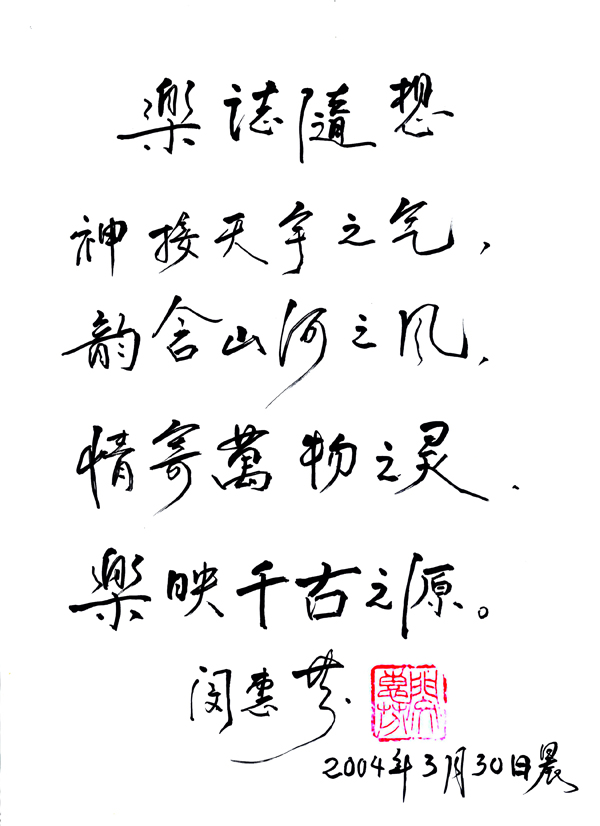 樂誌隨想
神接天宇之气，
韵含山河之风，
情寄萬物之灵、
樂映千古之源。
闵惠芬
閔惠芬
2004年3月30日晨